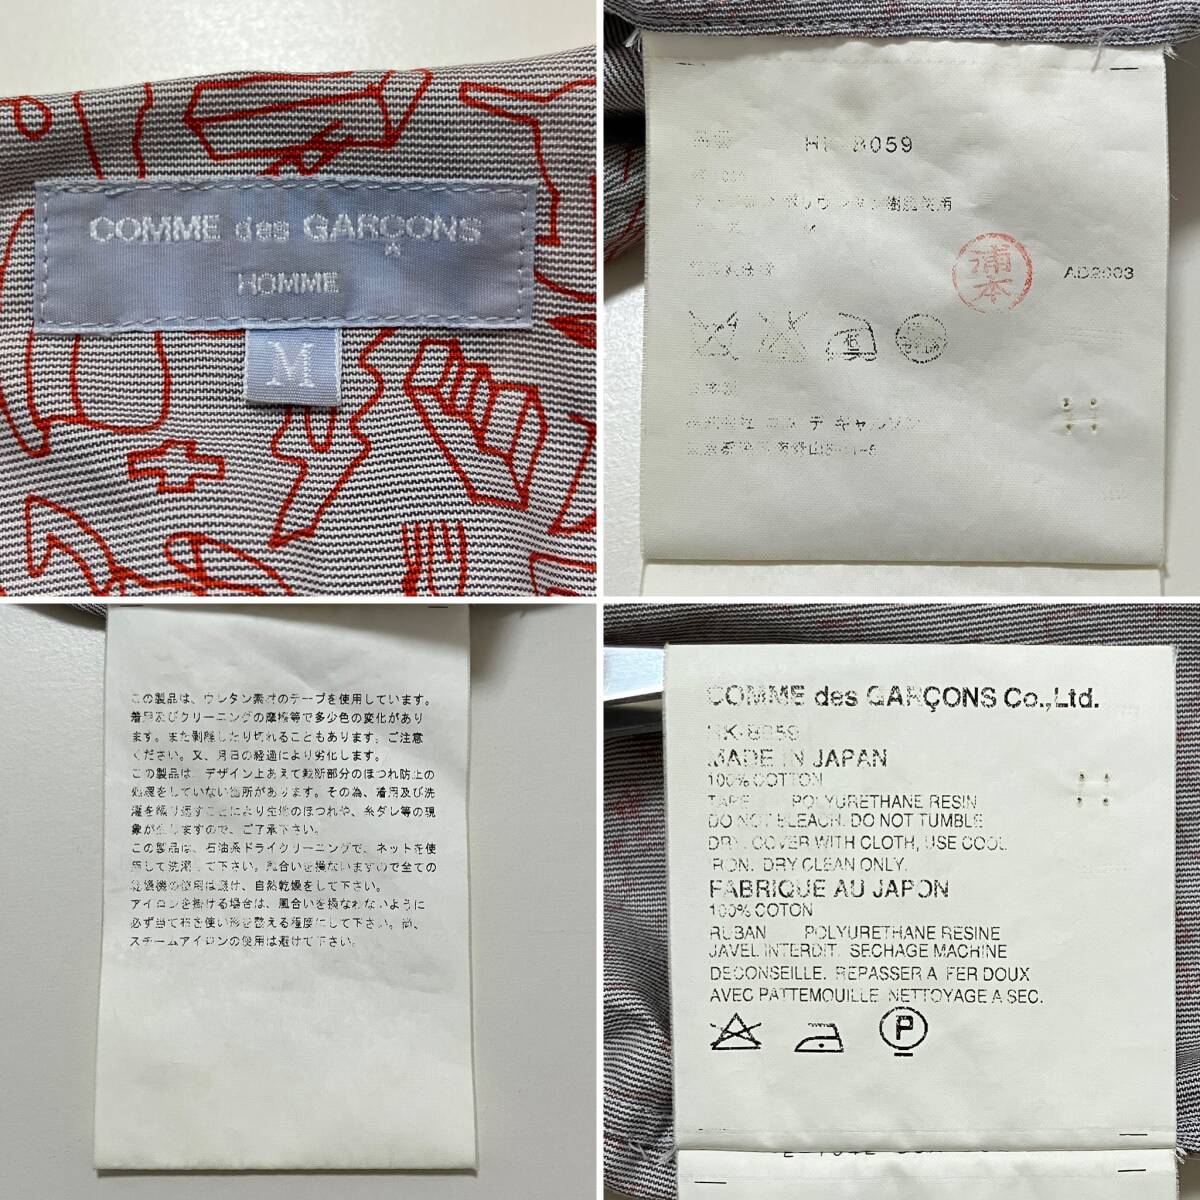 COMME des GARÇONS
HOMME
M
8059
樹脂使用
M
浦本
AD2003
デ ギャルソン
この製品は、ウレタン素材のテープを使用しています。
着用及びクリーニングの摩擦等で多少色の変化があり
ます。また剥離したり切れることもあります。ご注意
ください。又、月日の経過により劣化します。
この製品は、デザイン上あえて裁断部分のほつれ防止の
処理をしていない箇所があります。その為、着用及び洗
濯を繰り返すことにより生地のほつれや、糸ダレ等の現
象が生じますので、ご了承下さい。
この製品は、石油系ドライクリーニングで、ネットを使
用して洗濯して下さい。風合いを損ないますので全ての
乾燥機の使用は避け、自然乾燥をして下さい。
アイロンを掛ける場合は、風合いを損なわないように
必ず当て布を使い形を整える程度にして下さい。尚、
スチームアイロンの使用は避けて下さい。
COMME des GARÇONS Co.,Ltd.
HK-8059
MADE IN JAPAN
100% COTTON
TAPE POLYURETHANE RESIN
DO NOT BLEACH. DO NOT TUMBLE
DRY. COVER WITH CLOTH, USE COOL
IRON. DRY CLEAN ONLY.
FABRIQUE AU JAPON
100% COTON
RUBAN POLYURETHANE RESINE
JAVEL INTERDIT. SECHAGE MACHINE
DECONSEILLE. REPASSER A FER DOUX
AVEC PATTEMOUILLE NETTOYAGE A SEC.
P